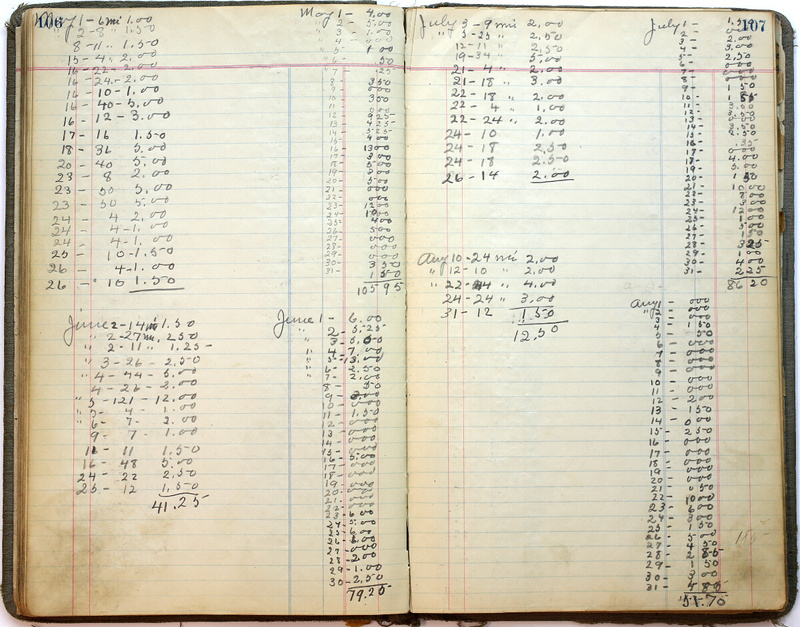 106
May 1 - 6 mi 1.00
" 2 - 8 " 1.50
8 - 11 " 1.50
15 - 4 - 2.00
16 - 22 - 2.00
16 - 24 - 2.00
16 - 10 - 1.00
16 - 40 - 5.00
16 - 12 - 3.00
17 - 16 1.50
18 - 36 5.00
20 - 40 5.00
23 - 8 2.00
23 - 50 5.00
23 - 50 5.00
24 4 2.00
24 - 4 - 1.00
24 4 - 1.00
25 - 10 - 1.50
26 - 4 - 1.00
26 - 10 1.50
June 2 - 14 mi 1.50
" 2 - 27 mi. 2.50
" 2 - 11 " 1.25
" 3 - 26 - 2.50
" 4 - 44 - 5.00
4 - 26 - 2.00
" 5 - 121 - 12.00
" 5 - 4 - 1.00
" 6 - 7 - 2.00
9 - 7 - 1.00
11 - 11 1.50
16 - 48 5.00
24 - 22 2.50
25 - 12 1.50
41.25
May 1 - 4.00
" 2 - 5.00
" 3 - 1.00
" 4 -
" 5 - 1.00
6 - .50
7 -
8 - 3 50
9 - 000
10 - 3 00
11 - 000
12 - 9 25
13 - 4 25
14 - 5 25
15 - 4 00
16 - 13 00
17 - 3 00
18 - 5 00
19 - 3 00
20 - 5 00
21 - 000
22 - 000
23 - 12 00
24 - 10 00
25 - 4 00
26 - 5 00
27 - 000
28 - 000
29 - 000
30 - 3 50
31 - 1 50
105 95
June 1 - 6.00
" 2 - 5.25
" 3 - 5.50
" 4 - 7.00
" 5 - 13.00
" 6 - 2.50
7 - 2.00
8 - 50
9 -
10 - 000
11 - 1.50
12 - 000
13 - 000
14 - 000
15 - 000
16 - 5.00
17 - 000
18 - 000
19 - 000
20 - 000
21 - 000
22 - 000
23 - 6.00
24 - 5.00
25 - 6.00
26 -
27 - 000
28 - 2.00
29 - 1.00
30 - 2.50
79.25
107
July 3 - 9 mi 2.00
" 5 - 25 " 2.50
12 - 11 " 2.50
19 - 34 " 5.00
21 - 4 " 2.00
21 - 18 " 3.00
22 - 18 " 2.00
22 - 4 " 1.00
22 - 24 " 2.00
24 - 10 1.00
24 - 18 2.50
24 - 18 2.50
26 - 14 2.00
Aug 10 - 24 mi 2.00
" 12 - 10 " 2.00
" 22 - " 4.00
24 - 24 " 3.00
31 - 12 1.50
12.50
July 1 -
2 -
3 - 2.00
4 - 3.00
5 - 2.50
6 - 000
7 - 000
8 - 000
9 - 1 50
10 -
11 -
12 - 000
13 -
14 -
15 - 000
16 -
17 - 000
18 - 4.00
19 - 5.00
20 -
21 -
22 -
23 - 000
24 -
25 -
26 -
27 -
28 - 3 25
29 - 000
30 - 4 00
31 - 2 25
86 20
Aug 1 - 000
" 2 - 000
3 - 000
4 - 1 50
5 - 50
6 - 000
7 - 000
8 - 000
9 - 000
10 - 000
11 - 000
12 - 2 00
13 - 1 50
14 - 000
15 - 2 50
16 - 000
17 - 000
18 - 000
19 - 000
20 - 000
21 - 50
22 - 10 00
23 - 6 00
24 - 3 00
25 - 1 50
26 - 5 00
27 - 4 50
28 - 2 85
29 - 1 50
30 - 3 00
31 - 4 85
51.70